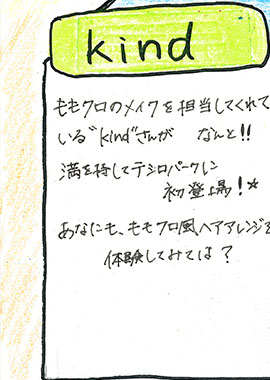 kind
ももクロのメイクを担当してくれて
いる"kind"さんが なんと!!
満を持してテシロパークに
初登場!★
あなにも、ももクロ風ヘアアレンジを
体験してみては?